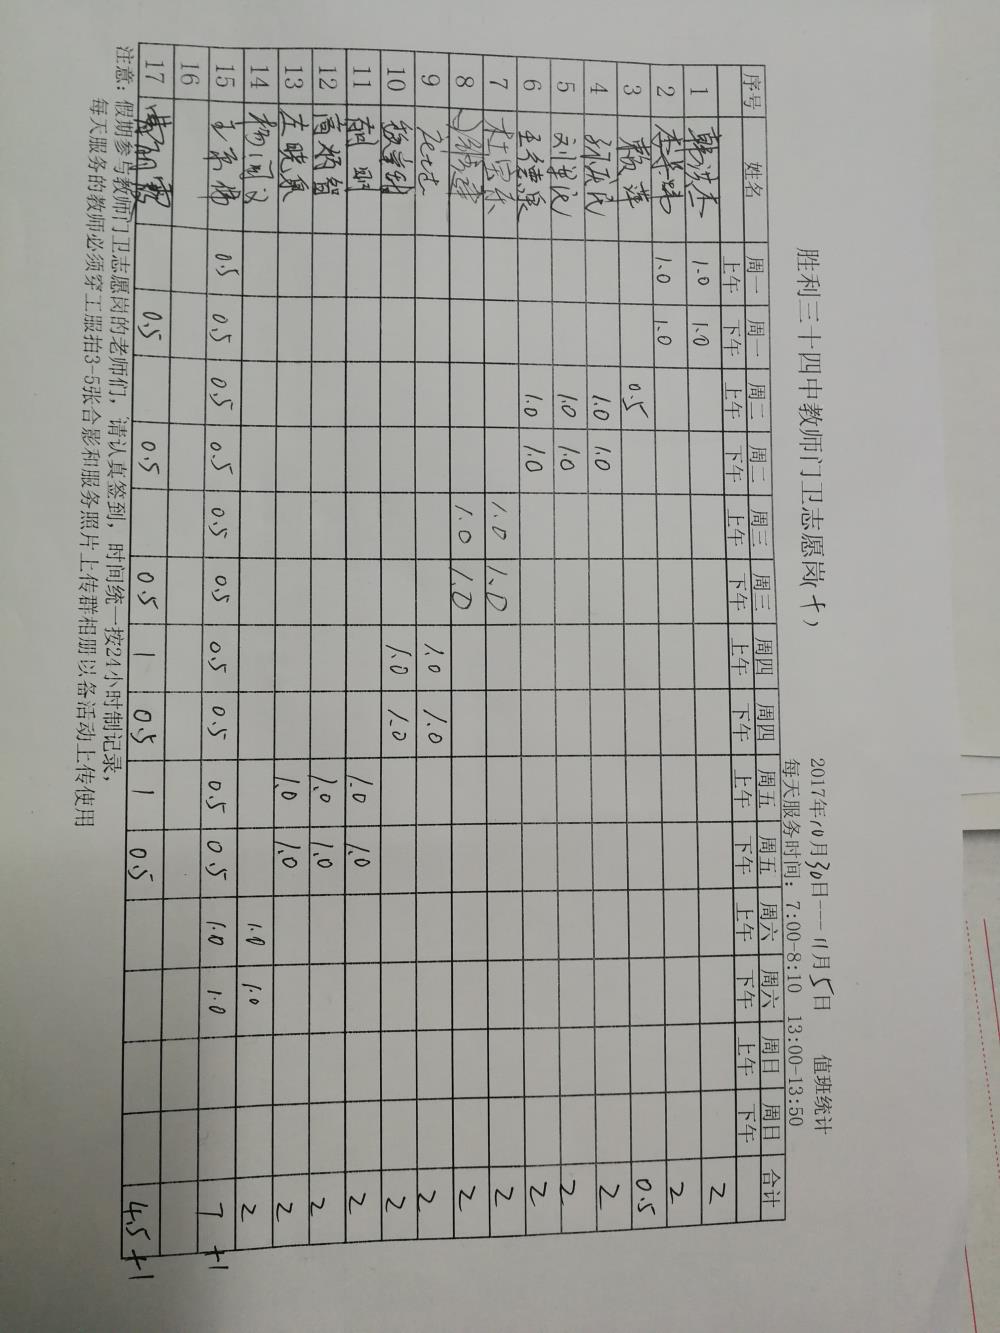 胜利三十四中教师门卫志愿岗(十)
2017年10月30日---11月5日 值班统计
每天服务时间：7:00-8:10 13:00-13:50
序号 姓名 周一 周一 周二 周二 周三 周三 周四 周四 周五 周五 周六 周六 周日 周日 合计
上午 下午 上午 下午 上午 下午 上午 下午 上午 下午 上午 下午 上午 下午
1 1.0 1.0 2
2 1.0 1.0 2
3 0.5 0.5
4 1.0 1.0 2
5 1.0 1.0 2
6 1.0 1.0 2
7 1.0 1.0 2
8 1.0 1.0 2
9 1.0 1.0 2
10 1.0 1.0 2
11 1.0 1.0 2
12 1.0 1.0 2
13 左晓泉 1.0 1.0 2
14 1.0 1.0 2
15 0.5 0.5 0.5 0.5 0.5 0.5 0.5 0.5 0.5 0.5 1.0 1.0 7 +1
16
17 0.5 0.5 0.5 1 0.5 1 0.5 4.5 +1
注意：假期参与教师门卫志愿岗的老师们，请认真签到，时间统一按24小时制记录，
每天服务的教师必须穿工服拍3-5张合影和服务照片上传群相册以备活动上传使用